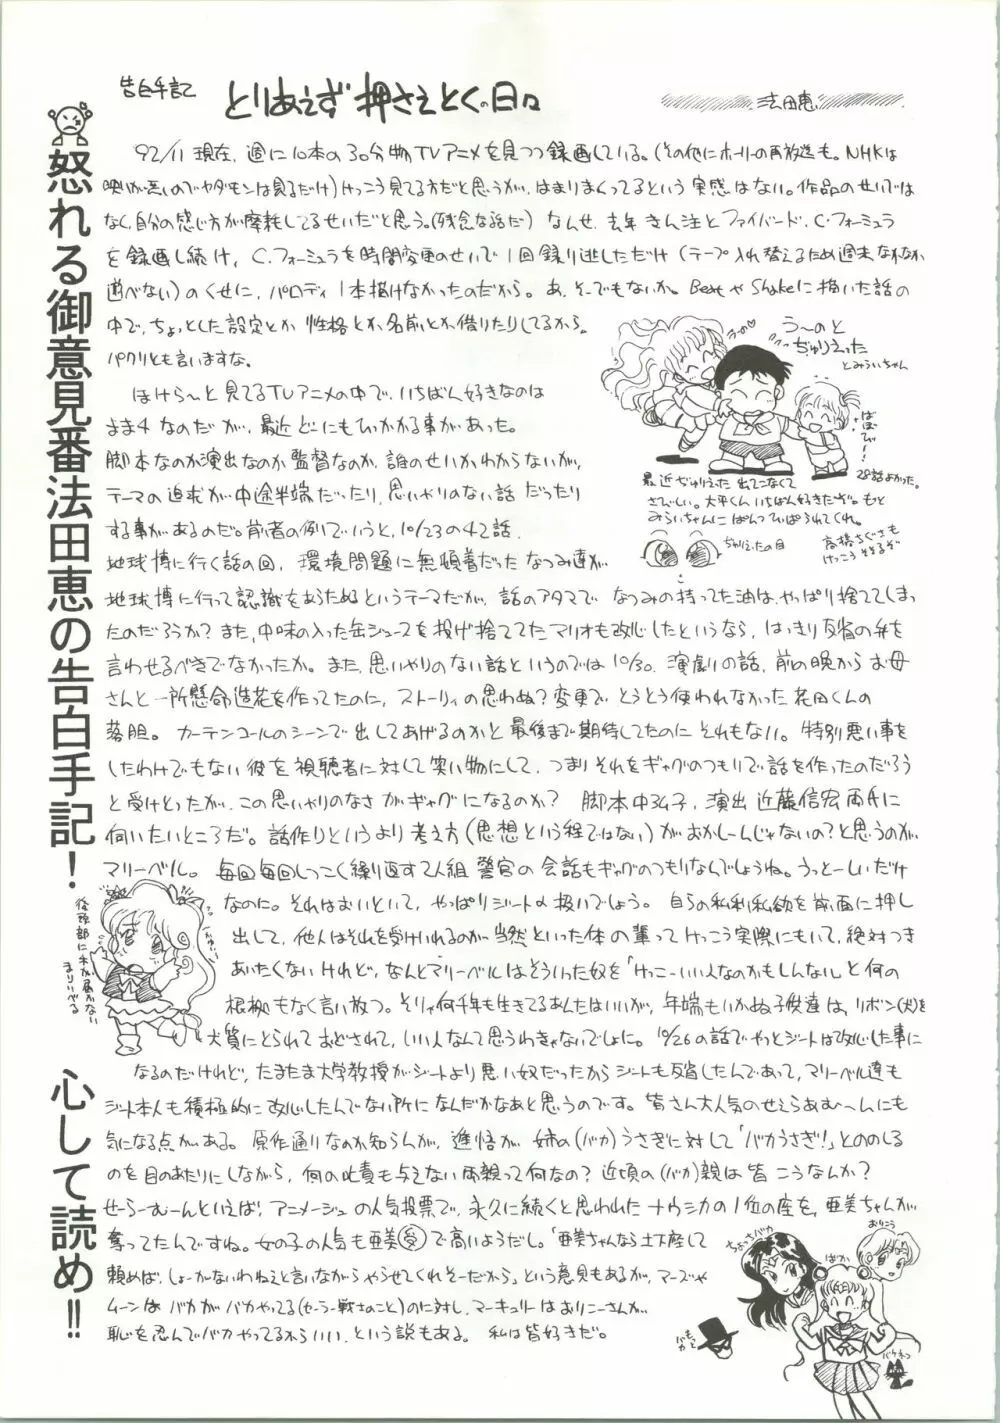 告白手記
とりあえず押さえとく日々
法田恵
怒れる御意見番法田恵の告白手記！
心して読め!!
92/11現在、週に10本の30分物TVアニメを見つつ録画している。(その他にホーリーの再放送も。NHKは
映りが悪いのでヤダモンは見るだけ)けっこう見てる方だと思うが、はまりまくってるという実感はない。作品のせいでは
なく、自分の感じ方が摩耗してるせいだと思う。(残念な話だ)なんせ、去年きん注とファイバード、C・フォーミュラ
を録画し続け、C.フォーミュラを時間変更のせいで1回録り逃しただけ(テープ入れ替えるため週末なかなか
遊べない)のくせに、パロディ1本描けなかったのだから。あ、そーでもないか。BeatやShakeに描いた話の
中で、ちょっとした設定とか性格とか名前とか借りたりしてるから。
パクリとも言いますな。
ほけら〜と見てるTVアニメの中で、いちばん好きなのは
まま4なのだが、最近どーにもひっかかる事があった。
脚本なのか演出なのか監督なのか、誰のせいかわからないが、
テーマの追求が中途半端だったり、思いやりのない話だったり
する事があるのだ。前者の例でいうと、10/23の42話、
地球博に行く話の回、環境問題に無頓着だったなつみ達が
地球博に行って認識をあらためるというテーマだが、話のアタマでなつみの持ってた油は、やっぱり捨ててしまっ
たのだろうか？また、中味の入った缶ジュースを投げ捨ててたマリオも改心したというなら、はっきり反省の弁を
言わせるべきでなかったか。また、思いやりのない話というのでは10/30、演劇の話、前の晩からお母
さんと一所懸命造花を作ってたのに、ストーリィの思わぬ？変更で、とうとう使われなかった花田くんの
落胆。カーテンコールのシーンで出してあげるのかと最後まで期待してたのにそれもない。特別悪い事を
したわけでもない彼を視聴者に対して笑い物にして、つまりそれをギャグのつもりで話を作ったのだろう
と受けとったが、この思いやりのなさがギャグになるのか？脚本中弘子、演出近藤信宏両氏に
伺いたいところだ。話作りというより考え方(思想という程ではない)がおかしーんじゃないの？と思うのが、
マリーベル。毎回毎回しつこく繰り返す2人組警官の会話もギャグのつもりなんでしょうね。うっとーしいだけ
なのに。それはおいといて、やっぱりジートの扱いでしょう。自らの私利私欲を前面に押し
出して、他人はそれを受けいれるのが当然といった体の輩ってけっこう実際にもいて、絶対つき
あいたくないけれど、なんとマリーベルはそういった奴を「けっこーいい人なのかもしんない」と何の
根拠もなく言い放つ。そりゃ何千年も生きてるあんたはいいが、年端もいかぬ子供達は、リボン(犬)を
犬質にとられておどされて、いい人なんて思うわきゃないでしょに。10/26の話でやっとジートは改心した事に
なるのだけれど、たまたま大学教授がジートより悪い奴だったからジートも反省したんであって、マリーベル達も
ジート本人も積極的に改心したんでない所になんだかなあと思うのです。皆さん大人気のせえらあむ〜んにも
気になる点がある。原作通りなのか知らんが、進悟が姉の(バカ)うさぎに対して「バカうさぎ！」とののしる
のを目のあたりにしながら、何の叱責も与えない両親って何なの？近頃の(バカ)親は皆こうなんか？
せーらーむーんといえば、アニメージュの人気投票で、永久に続くと思われたナウシカの1位の座を、亜美ちゃんが
奪ってたんですね。女の子の人気も亜美(受)で高いようだし。「亜美ちゃんなら土下座して
頼めば、しょーがないわねえと言いながらやらせてくれそーだから」という意見もあるが、マーズや
ムーンはバカがバカやってる(セーラー戦士のこと)のに対し、マーキュリーはおりこーさんが
恥を忍んでバカやってるからいい、という説もある。私は皆好きだ。
う〜のと
ぢゅりえった
とみらいちゃん
う〜の♡
ぱぱぴー！
28話よかった。
最近ぢゅりえった出てこなくて
さびしい。大平くんいちばん好きだぞ。もっと
みらいちゃんにぱんつひっぱられてくれ。
ぢゅりえったの目
高橋ちぐさも
けっこうそそるぞ
後頭部に手が届かない
まりいべる
ちょっとバカ
ばか
おりこう
もっとバカ
バケネコ